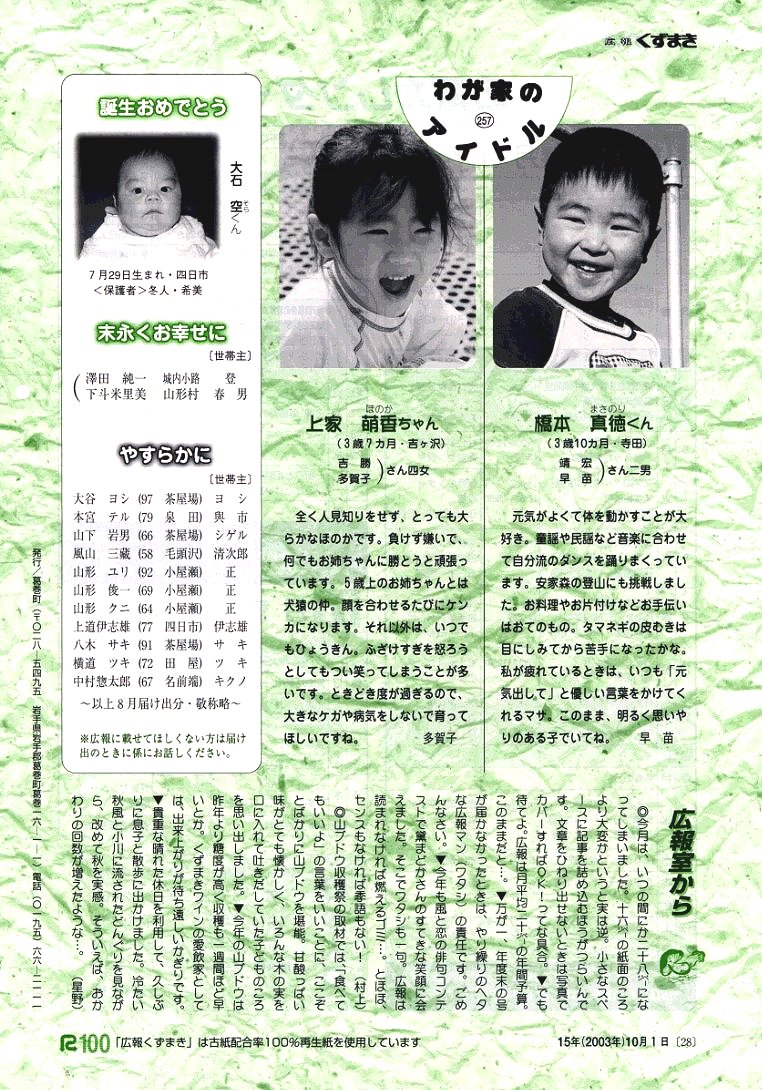 広報くずまき
わが家の
アイドル
257
誕生おめでとう
大石 空くん
そら
7月29日生まれ・四日市
＜保護者＞冬人・希美
末永くお幸せに
〔世帯主〕
澤田 純一 城内小路 登
下斗米里美 山形村 春男
やすらかに
〔世帯主〕
大谷 ヨシ (97 茶屋場) ヨシ
本宮 テル (79 泉田) 與市
山下 岩男 (66 茶屋場) シゲル
風山 三蔵 (58 毛頭沢) 清次郎
山形 ユリ (92 小屋瀬) 正
山形 俊一 (69 小屋瀬) 正
山形 クニ (64 小屋瀬) 正
上道伊志雄 (77 四日市) 伊志雄
八木 サキ (91 茶屋場) サキ
横道 ツキ (72 田屋) ツキ
中村惣太郎 (67 名前端) キクノ
～以上8月届け出分・敬称略～
※広報に載せてほしくない方は届け
出のときに係にお話しください。
ほのか
上家 萌香ちゃん
（3歳7カ月・吉ヶ沢）
吉勝
多賀子
さん四女
全く人見知りをせず、とっても大
らかなほのかです。負けず嫌いで、
何でもお姉ちゃんに勝とうと頑張っ
ています。5歳上のお姉ちゃんとは
犬猿の仲。顔を合わせるたびにケン
カになります。それ以外は、いつで
もひょうきん。ふざけすぎを怒ろう
としてもつい笑ってしまうことが多
いです。ときどき度が過ぎるので、
大きなケガや病気をしないで育って
ほしいですね。 多賀子
まさのり
橋本 真徳くん
（3歳10カ月・寺田）
靖宏
早苗
さん二男
元気がよくて体を動かすことが大
好き。童謡や民謡など音楽に合わせ
て自分流のダンスを踊りまくってい
ます。安家森の登山にも挑戦しまし
た。お料理やお片付けなどお手伝い
はおてのもの。タマネギの皮むきは
目にしみてから苦手になったかな。
私が疲れているときは、いつも「元
気出して」と優しい言葉をかけてく
れるマサ。このまま、明るく思いや
りのある子でいてね。 早苗
広報室から
◎今月は、いつの間にか二十八㌻にな
ってしまいました。十六㌻の紙面のころ
より大変かというと実は逆。小さなスペ
ースに記事を詰め込むほうがつらいんで
す。文章をひねり出せないときは写真で
カバーすればOK！って具合。▼でも
待てよ。広報は月平均二十六㌻の年間予算。
このままだと…。▼万が一、年度末の号
が届かなかったときは、やり繰りのヘタ
な広報マン（ワタシ）の責任です。ごめ
んなさい。▼今年も風と恋の俳句コンテ
ストで黛まどかさんのすてきな笑顔に会
えました。そこでワタシも一句。広報は
読まれなければ燃えるゴミ…。とほほ、
センスもなければ季語もない！（村上）
◎山ブドウ収穫祭の取材では、「食べて
もいいよ」の言葉をいいことに、ここぞ
とばかりに山ブドウを堪能。甘酸っぱい
味がとても懐かしく、いろんな木の実を
口に入れて吐きだしていた子どものころ
を思い出しました。▼今年の山ブドウは
昨年より糖度が高く収穫も一週間ほど早
いとか。くずまきワインの愛飲家として
は、出来上がりが待ち遠しいかぎりです。
▼貴重な晴れた休日を利用して、久しぶ
りに息子と散歩に出かけました。冷たい
秋風と小川に流されたどんぐりを見なが
ら、改めて秋を実感。そういえば、おか
わりの回数が増えたような…。（星野）
発行／葛巻町（〒〇二八―五四九五 岩手県岩手郡葛巻町葛巻一六―一―一 電話（〇一九五）六六―二一一一
R100 「広報くずまき」は古紙配合率100％再生紙を使用しています
15年(2003年)10月1日〔28〕